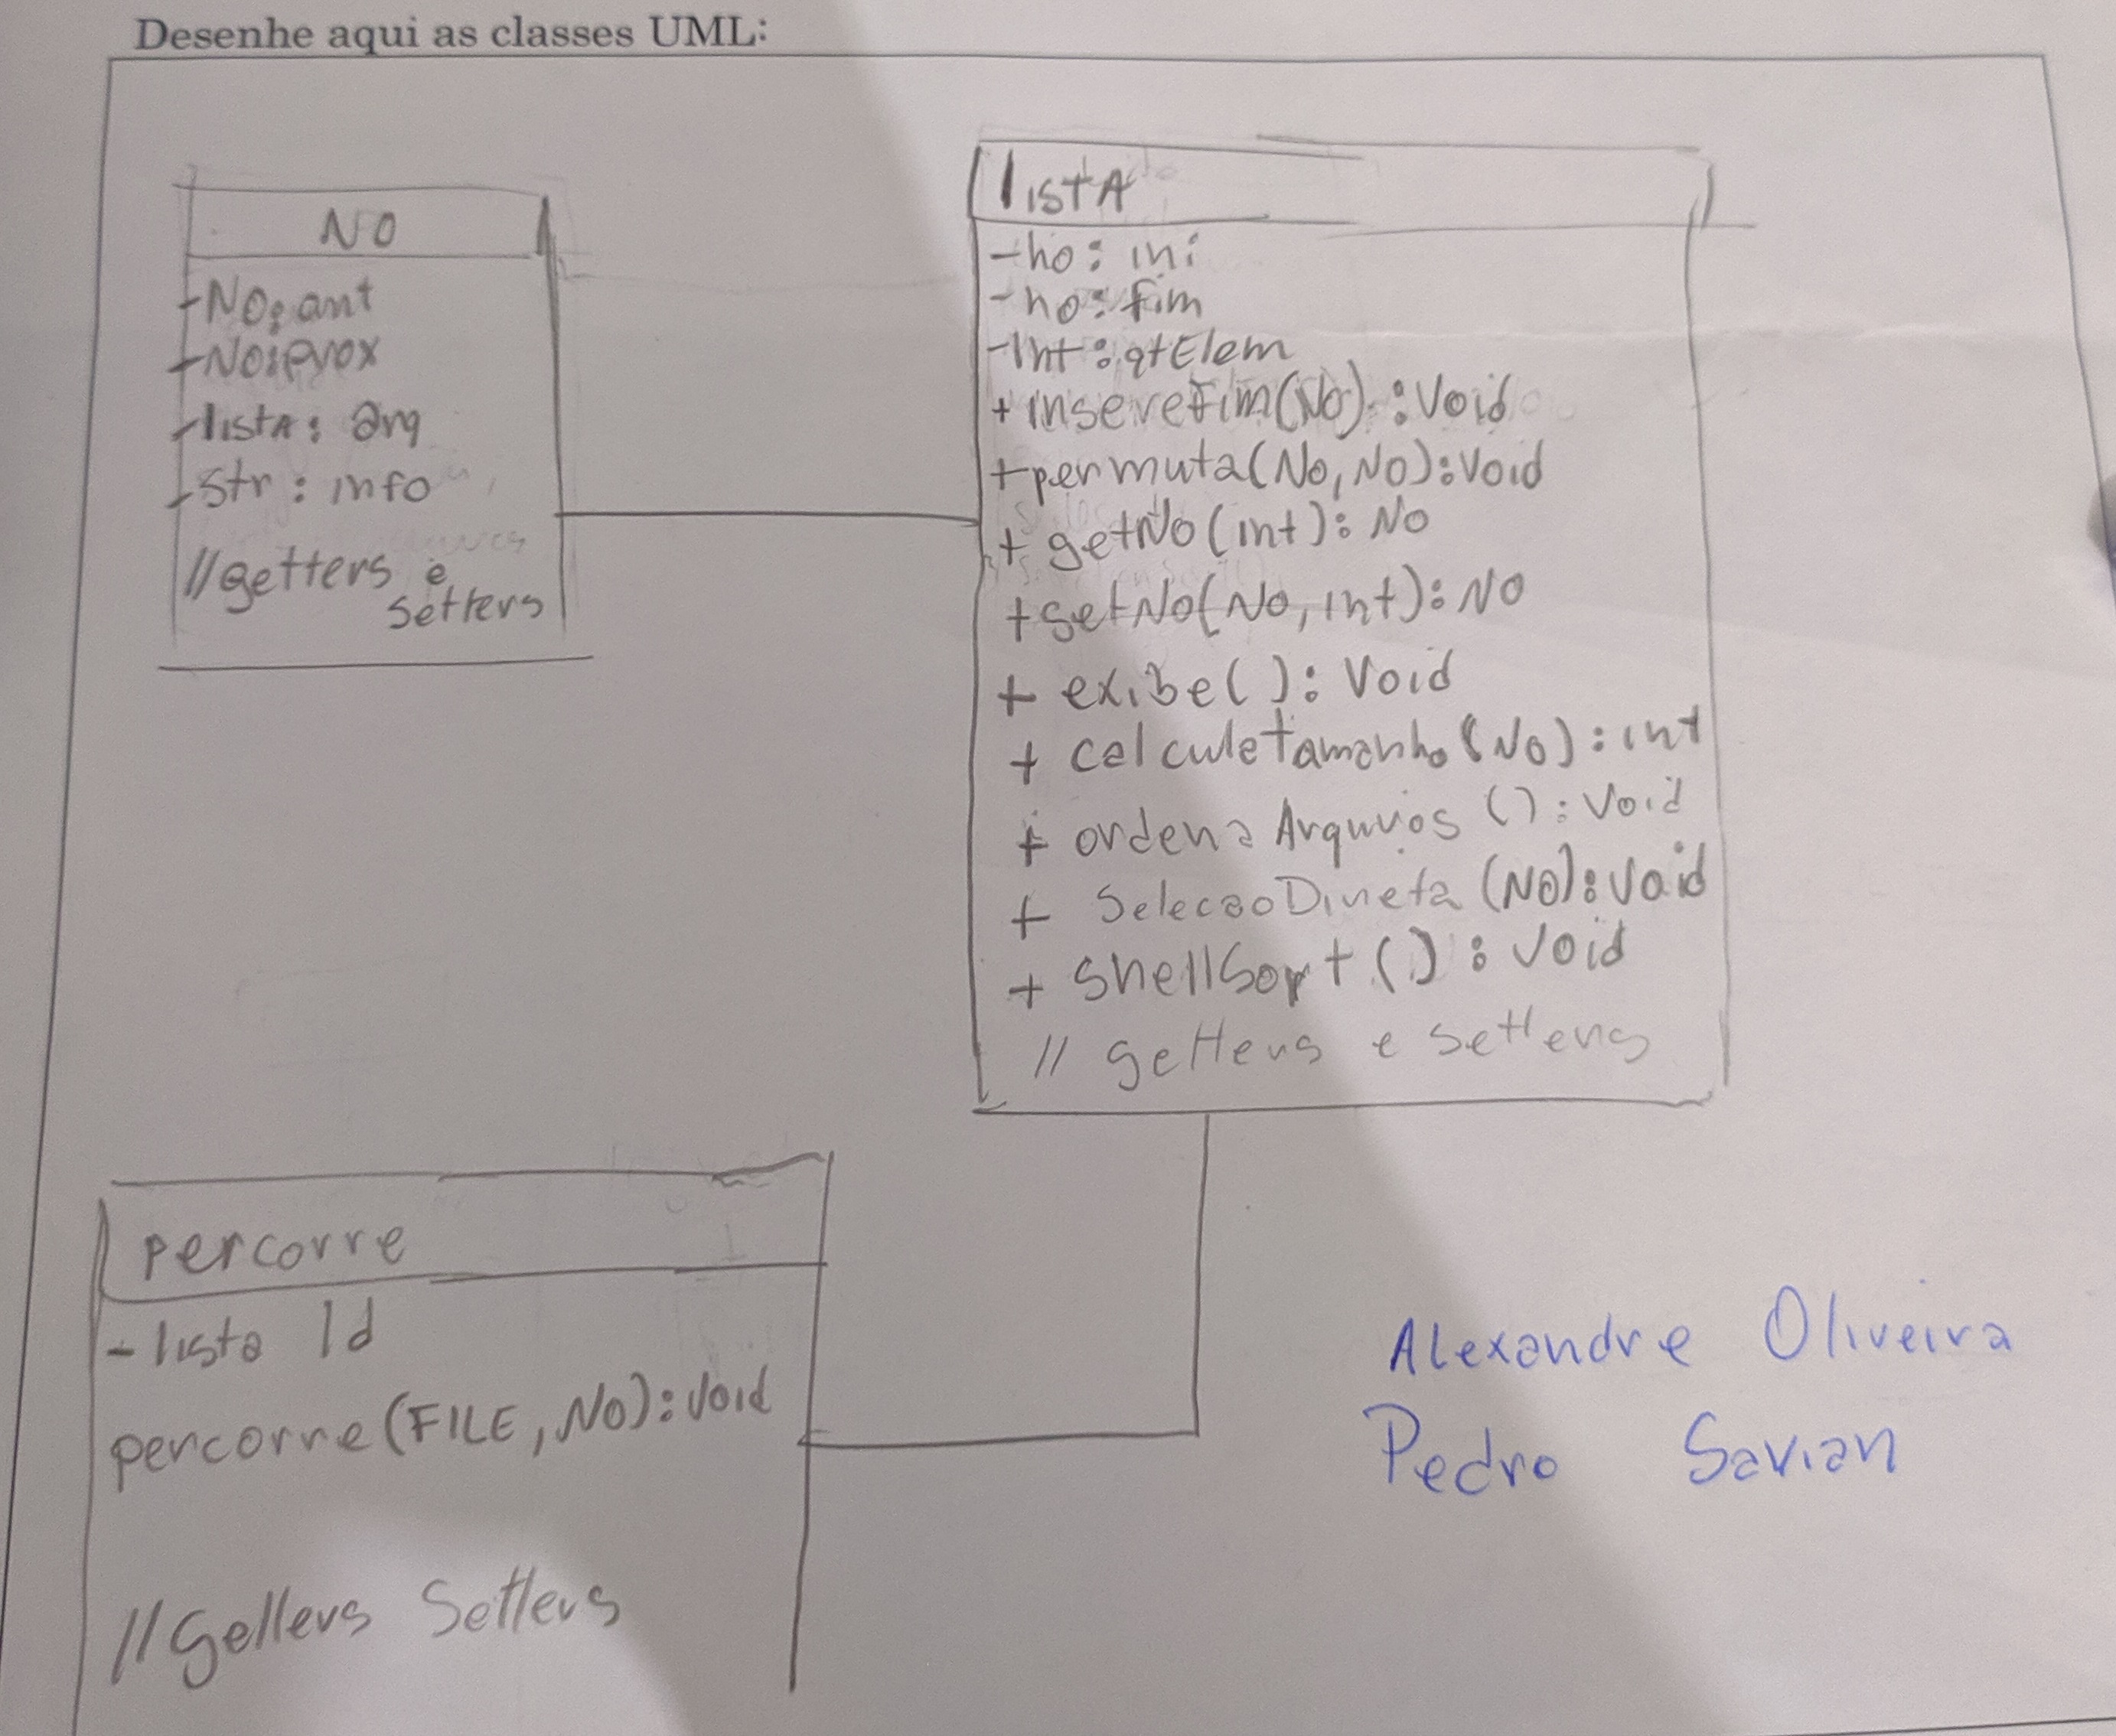 Desenhe aqui as classes UML:
NO
-NO: ant
-NO: prox
-listA: arq
-Str: info
//getters e
setters
listA
-no: ini
-no: fim
-Int: qtElem
+insereFim(No): Void
+permuta(No, No): Void
+ getNo(int): No
+setNo(No, int): NO
+ exibe( ): Void
+ calculetamanho(No): int
+ ordena Arquivos (): Void
+ SelecaoDireta (NO): Void
+ shellSort ( ): Void
// getters e setters
percorre
- lista ld
percorre(FILE, NO): Void
//Getters Setters
Alexandre Oliveira
Pedro Savian